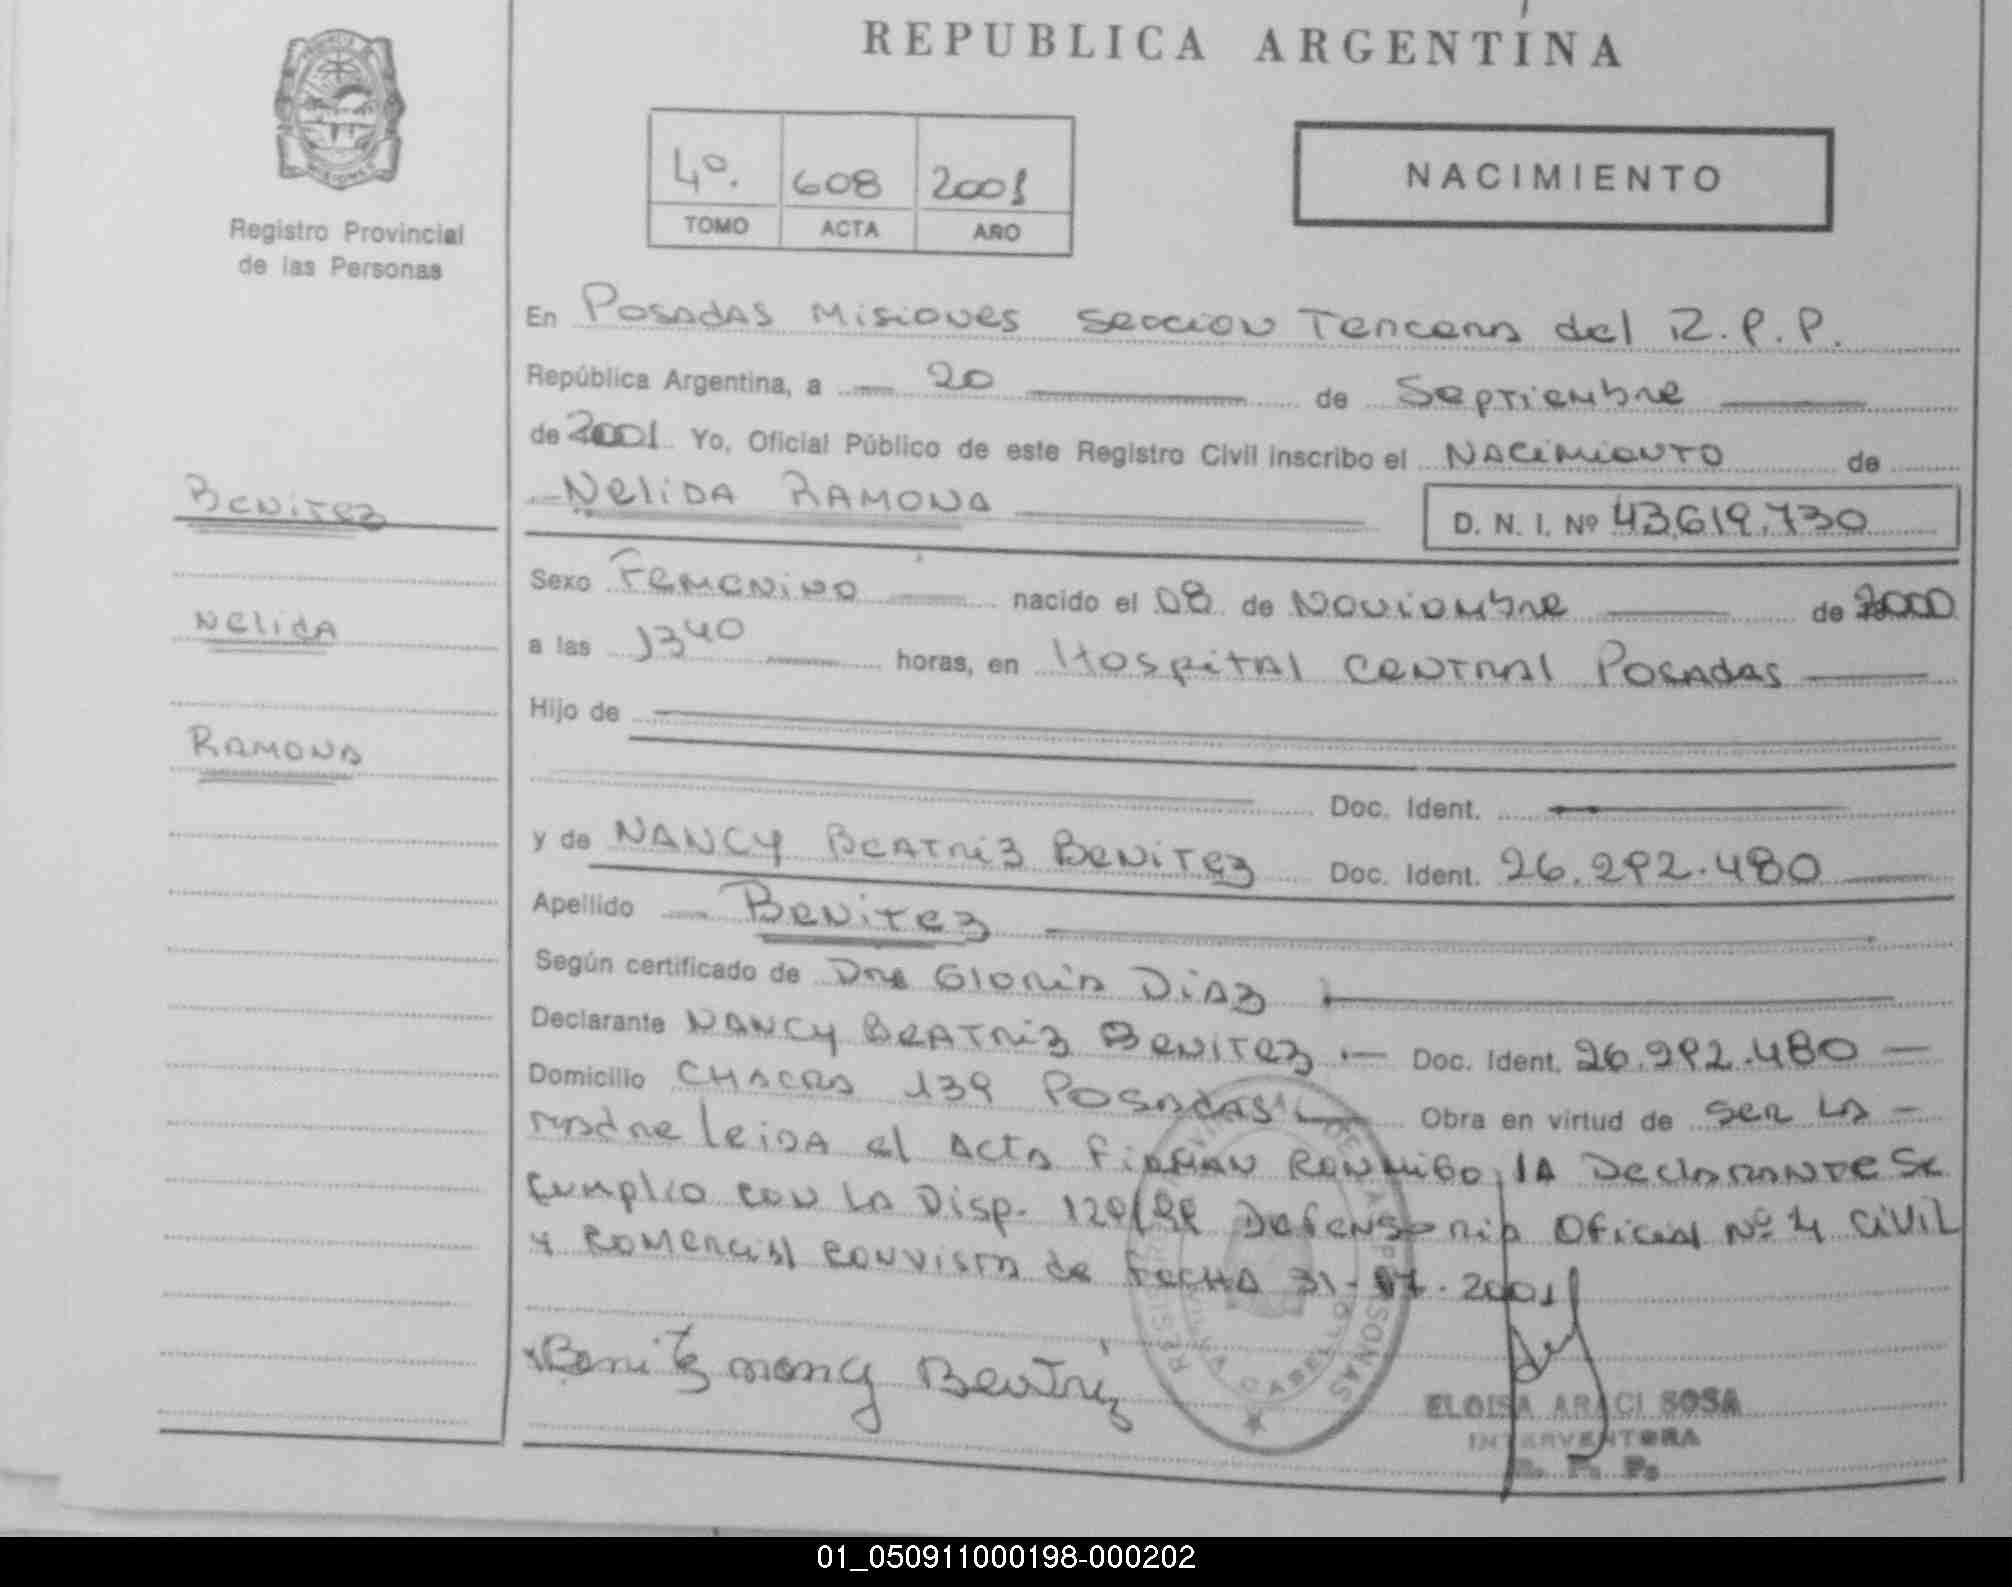 REPUBLICA ARGENTINA
Registro Provincial
de las Personas
4º. 608 2001
TOMO ACTA AÑO
NACIMIENTO
En Posadas Misiones Seccion Tercera del R.P.P.
República Argentina, a 20 de Septiembre
de 2001. Yo, Oficial Público de este Registro Civil inscribo el Nacimiento de
Nelida Ramona D. N. I. Nº 43.619.730
Benitez
Nelida
Ramona
Sexo Femenino nacido el 08 de Noviembre de 2000
a las 1340 horas, en Hospital Central Posadas
Hijo de
Doc. Ident.
y de Nancy Beatriz Benitez Doc. Ident. 26.292.480
Apellido Benitez
Según certificado de Dra Gloria Diaz
Declarante Nancy Beatriz Benitez .— Doc. Ident. 26.292.480 —
Domicilio Chacra 139 Posadas Obra en virtud de ser la -
madre leida el Acta firman conmigo la declarante Se
cumplio con la Disp. Defensoria Oficial Nº 4 Civil
y Comercial convista de fecha 31-07.2001
Benitez nancy Beatriz
ELOISA ARACI SOSA
INTERVENTORA
R. P. P.
01_050911000198-000202